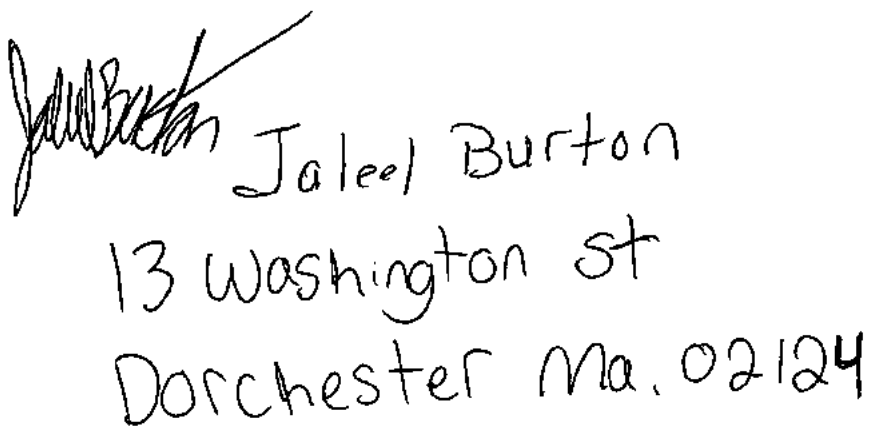 Jaleel Burton Jaleel Burton
13 Washington St
Dorchester Ma. 02124